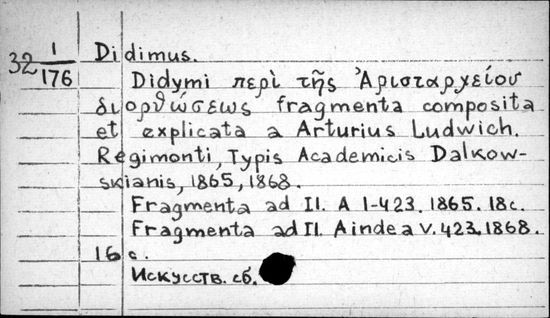 32 1/176
Didimus.
Didymi περὶ τῆς Ἀρισταρχείου
διορθώσεως fragmenta composita
et explicata a Arturius Ludwich.
Regimonti, Typis Academicis Dalkow-
skianis, 1865, 1868.
Fragmenta ad Il. A 1-423. 1865. 18c.
Fragmenta ad Il. A inde a v. 423. 1868.
16 c.
Искусств. сб.